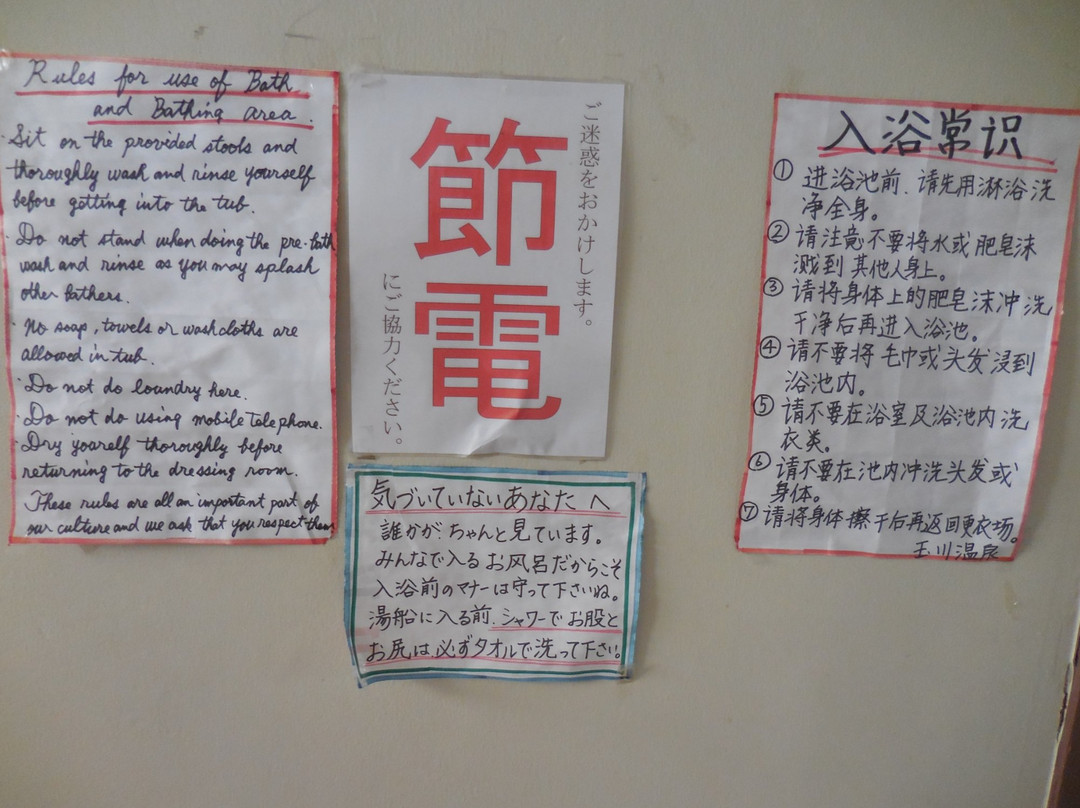 Rules for use of Bath
and Bathing area.
· Sit on the provided stools and
thoroughly wash and rinse yourself
before getting into the tub.
· Do not stand when doing the pre-bath
wash and rinse as you may splash
other bathers.
· No soap, towels or washcloths are
allowed in tub.
· Do not do loundry here.
· Do not do using mobile telephone.
· Dry yoarself thoroughly before
returning to the dressing room.
These rules are all an important part of
our culture and we ask that you respect them
ご迷惑をおかけします。
節電
にご協力ください。
気づいていないあなたへ
誰かがちゃんと見ています。
みんなで入るお風呂だからこそ
入浴前のマナーは守って下さいね。
湯船に入る前、シャワーでお股と
お尻は、必ずタオルで洗って下さい。
入浴常识
① 进浴池前、请先用淋浴洗
净全身。
② 请注意不要将水或肥皂沫
溅到其他人身上。
③ 请将身体上的肥皂沫冲洗
干净后再进入浴池。
④ 请不要将毛巾或头发浸到
浴池内。
⑤ 请不要在浴室及浴池内洗
衣类。
⑥ 请不要在池内冲洗头发或
身体。
⑦ 请将身体擦干后再返回更衣场。
玉川温泉